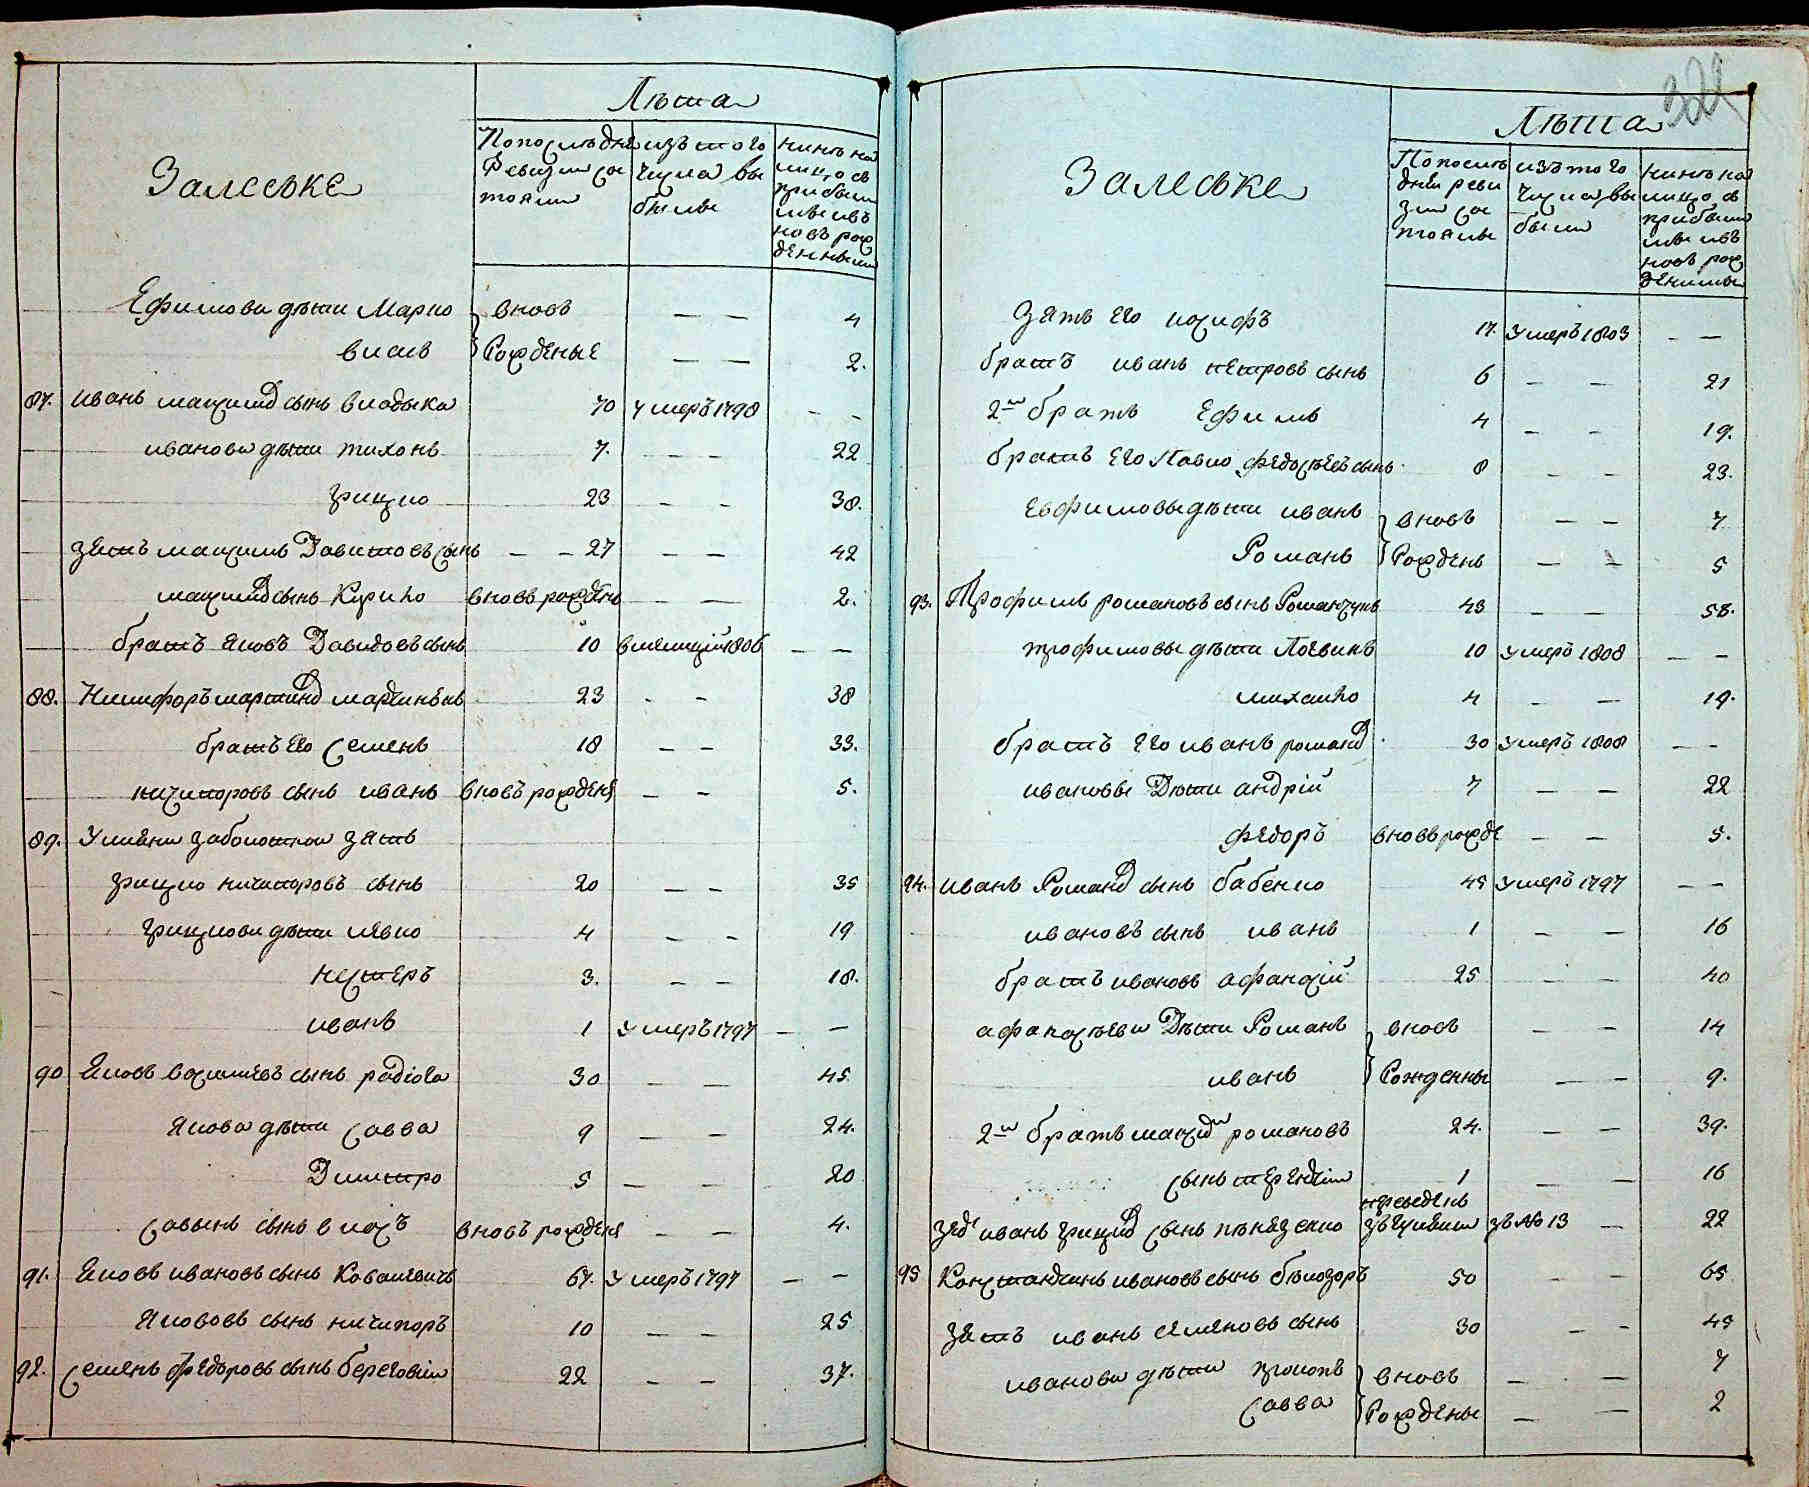 Лѣта
Залеське
По послѣдне ревизии состояли
изъ того числа выбыли
нинѣ на лицо съ прибывшими и вновъ рожденными
Ефимови дѣти Марко вновъ — — 4
власъ Рожденые — — 2.
87. иванъ максимов сынъ владыка 70 умеръ 1798 — —
иванови дѣти тихонъ 7. — — 22
грицко 23 — — 38.
зять максимъ Давитовъ сынъ — — 27 — — 42
максимов сынъ Кирило вновъ рожденъ — — 2.
братъ яковъ Давидовъ сынъ 10 в милиций 1806 — —
88. Никифоръ мартинов мартинѣнъ 23 — — 38
братъ его семенъ 18 — — 33.
ничипоровъ сынъ иванъ вновъ рожденъ — — 5.
89. Умѣнш заболотнои зять
грицко ничипоровъ сынъ 20 — — 35
грицкови дѣти левко 4 — — 19
нестеръ 3. — — 18.
иванъ 1 умеръ 1797 — —
90 Яковъ василиевъ сынъ 30 — — 45
Якова дѣти савва 9 — — 24.
Димитро 5 — — 20
савынъ сынъ власъ вновъ рожденъ — — 4.
91. Яковъ ивановъ сынъ Ковалевичъ 67. умеръ 1797 — —
Якововъ сынъ ничипоръ 10 — — 25
92. семенъ федоровъ сынъ береговiй 22 — — 37.
322
Лѣта
Залеське
По последнѣй ревизии состояли
изъ того числа выбыли
нинѣ на лицо съ прибывшими и вновъ рожденими
Зять его иосифъ 17. умеръ 1803 — —
братъ иванъ петровъ сынъ 6 — — 21
2й братъ Ефимъ 4 — — 19.
братъ его Павло федосѣевъ сынъ 8 — — 23.
Евфимовы дѣти иванъ вновъ — — 7
Романъ Рожденъ — — 5
93. Трофимъ романовъ сынъ Романчукъ 43 — — 58.
трофимовы дѣти 10 умеръ 1808 — —
михаило 4 — — 19.
братъ его иванъ романов 30 умеръ 1808 — —
ивановы Дѣти андрiй 7 — — 22
федоръ вновъ рожде — — 5.
94. иванъ Романов сынъ бабенко 45 умеръ 1797 — —
ивановъ сынъ иванъ 1 — — 16
братъ ивановъ афанасiй 25 — — 40
афанасѣеви Дѣти Романъ вновъ — — 14
иванъ Рожденны — — 9.
2й братъ максим романовъ 24. — — 39.
сынъ терентiй 1 — — 16
иванъ грицков сынъ переведенъ зъ № 13 — 22
95 Константинъ ивановъ сынъ бѣлозоръ 50 — — 65
зять иванъ семеновъ сынъ 30 — — 45
иванови дѣти прокопъ вновъ — — 7
савва Рождены — — 2